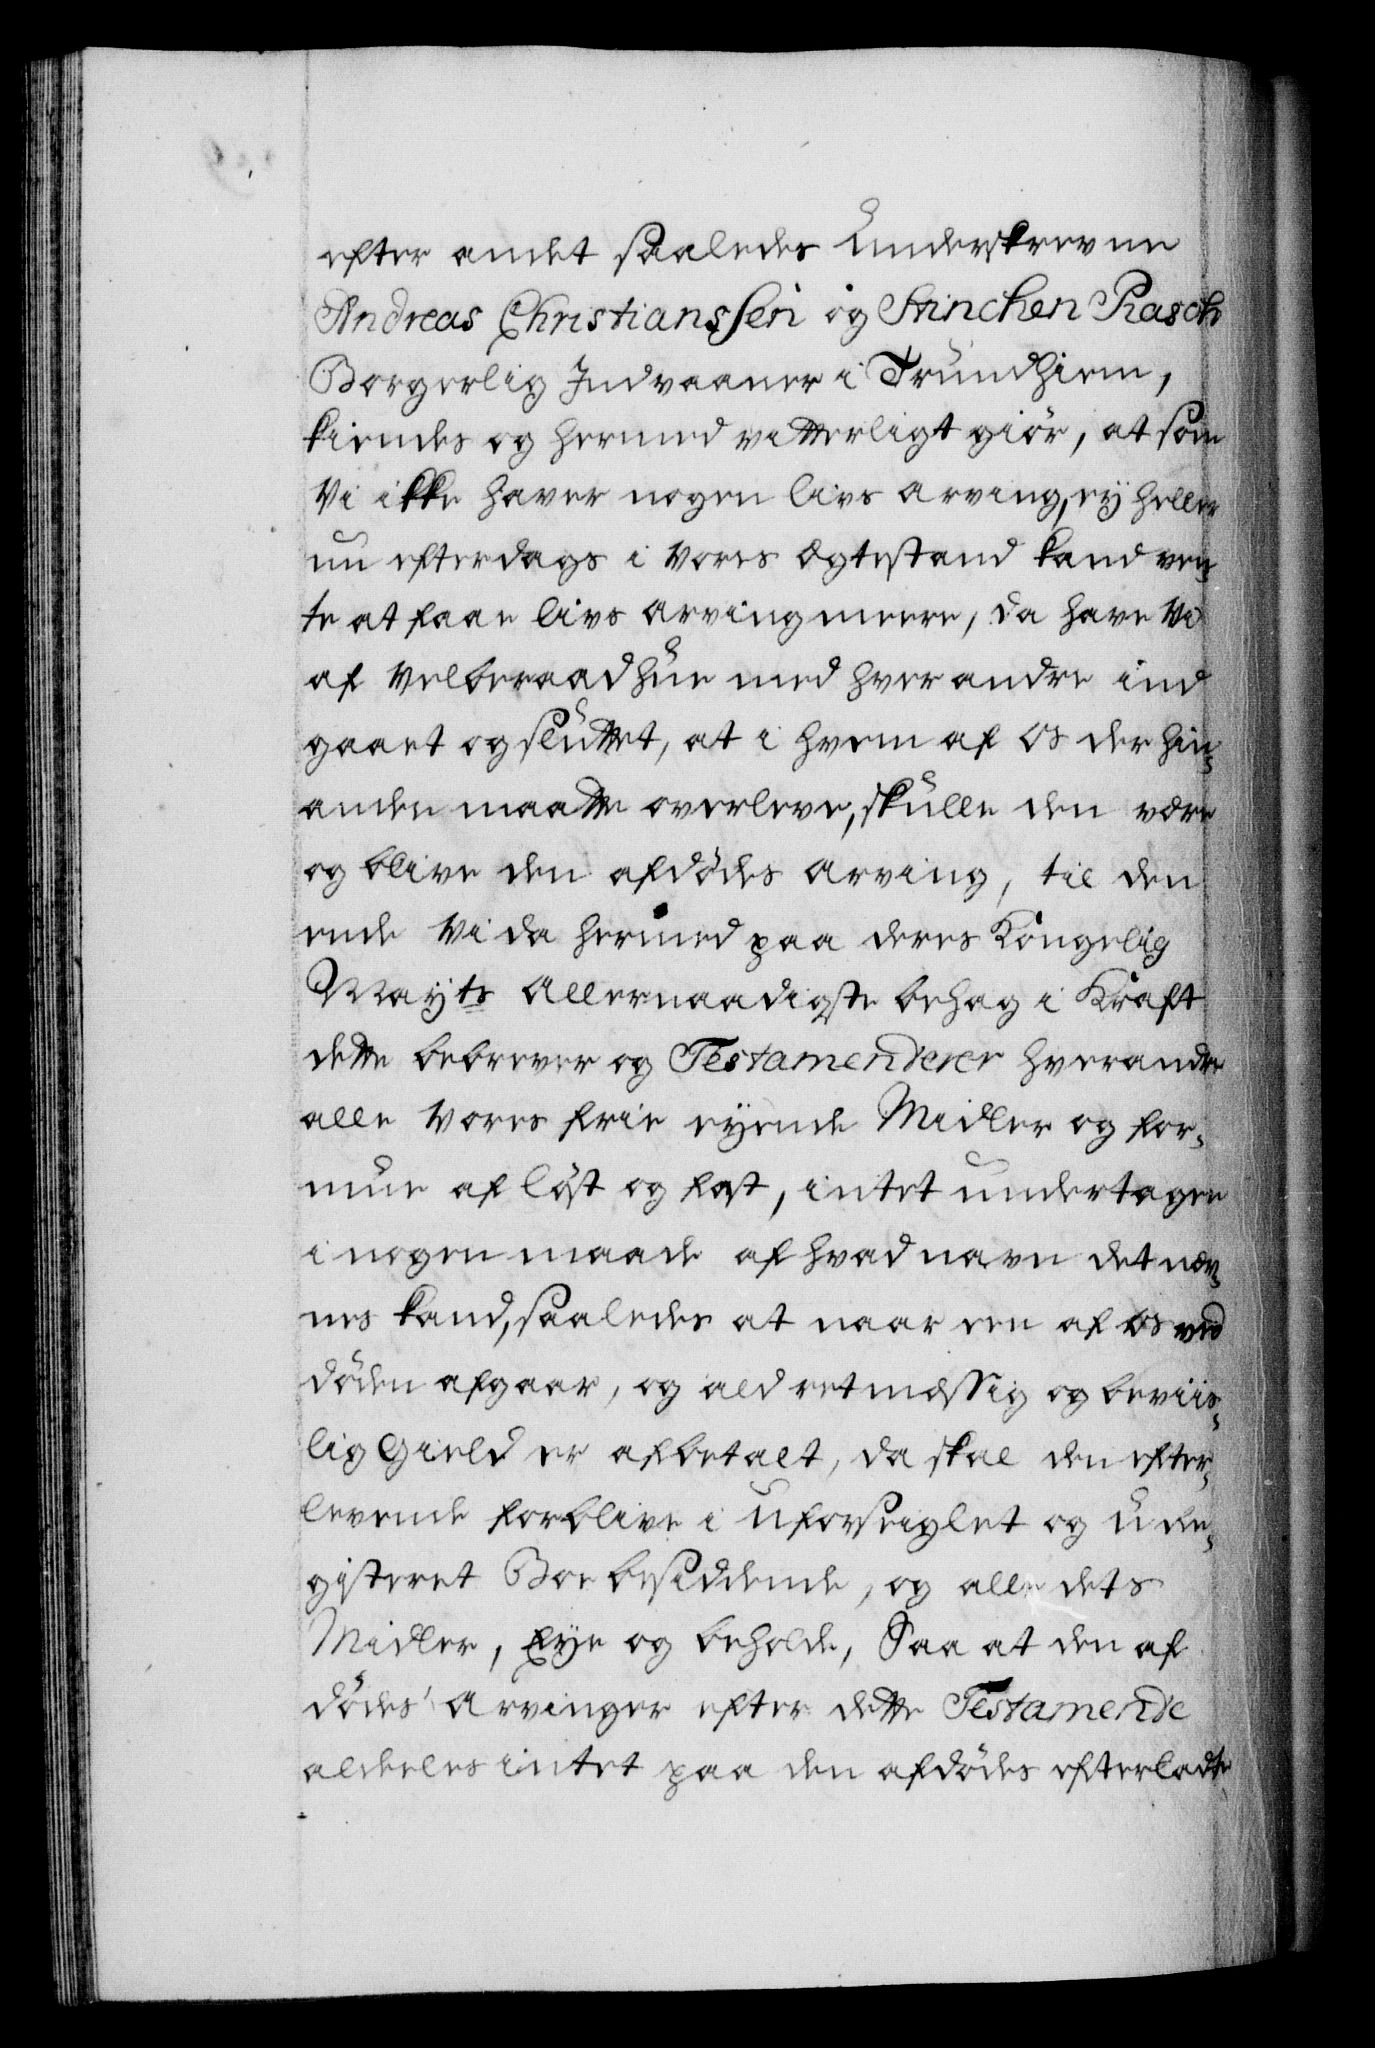 efter andet saaledes Underskrevne
Andreas Christianssen og Stinchen Rasch
Borgerlig Indvaaner i Trundhiem,
kiendes og hermed vitterligt giør, at som
Vi ikke haver nogen livs arving, ey heller
nu efterdags i Vores Ægtestand kand ven-
te at faae livs arving meere, da have Vi
af Velberaad hue med hver andre ind
gaaet og sluttet, at i hvem af os der hin-
anden maatte overleve, skulle den være
og blive den afdødes arving, til den
ende Vi da hermed paa deres Kongelig
Mayts allernaadigste behag i Kraft
dette bebrever og Testamenderer hverandre
alle Vores frie eyende Midler og for-
mue af løst og fast, intet undertagen
i nogen maade af hvad navn det næv-
nes kand, saaledes at naar een af os ved
døden afgaar, og ald retmæssig og beviis-
lig Gield er afbetalt, da skal den efter-
levende forblive i uforseiglet og u Re-
gisteret Boe besiddende, og alle dets
Midler, Eye og beholde, Saa at den af
dødes arvinger efter dette Testamende
aldeles intet paa den afdødes efterladte